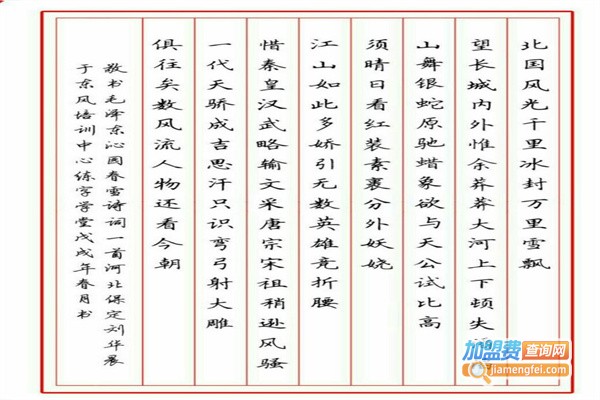 北国风光千里冰封万里雪飘
望长城内外惟余莽莽大河上下顿失
山舞银蛇原驰蜡象欲与天公试比高
须晴日看红装素裹分外妖娆
江山如此多娇引无数英雄竞折腰
惜秦皇汉武略输文采唐宗宋祖稍逊风骚
一代天骄成吉思汗只识弯弓射大雕
俱往矣数风流人物还看今朝
敬书毛泽东沁园春雪诗词一首河北保定刘华展
于东风培训中心练字学堂戊戌年春月书
加盟费查询网
jiamengfei.com